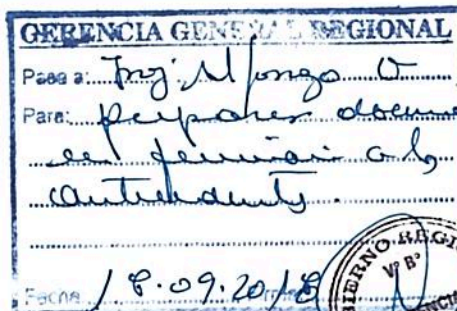 GERENCIA GENERAL REGIONAL
Pase a: Ing. Alfonzo O
Para: preparar docume
en a los
antecedentes.
Fecha 18.09.2018
BIERNO REGI
Vº Bº
ENCIA